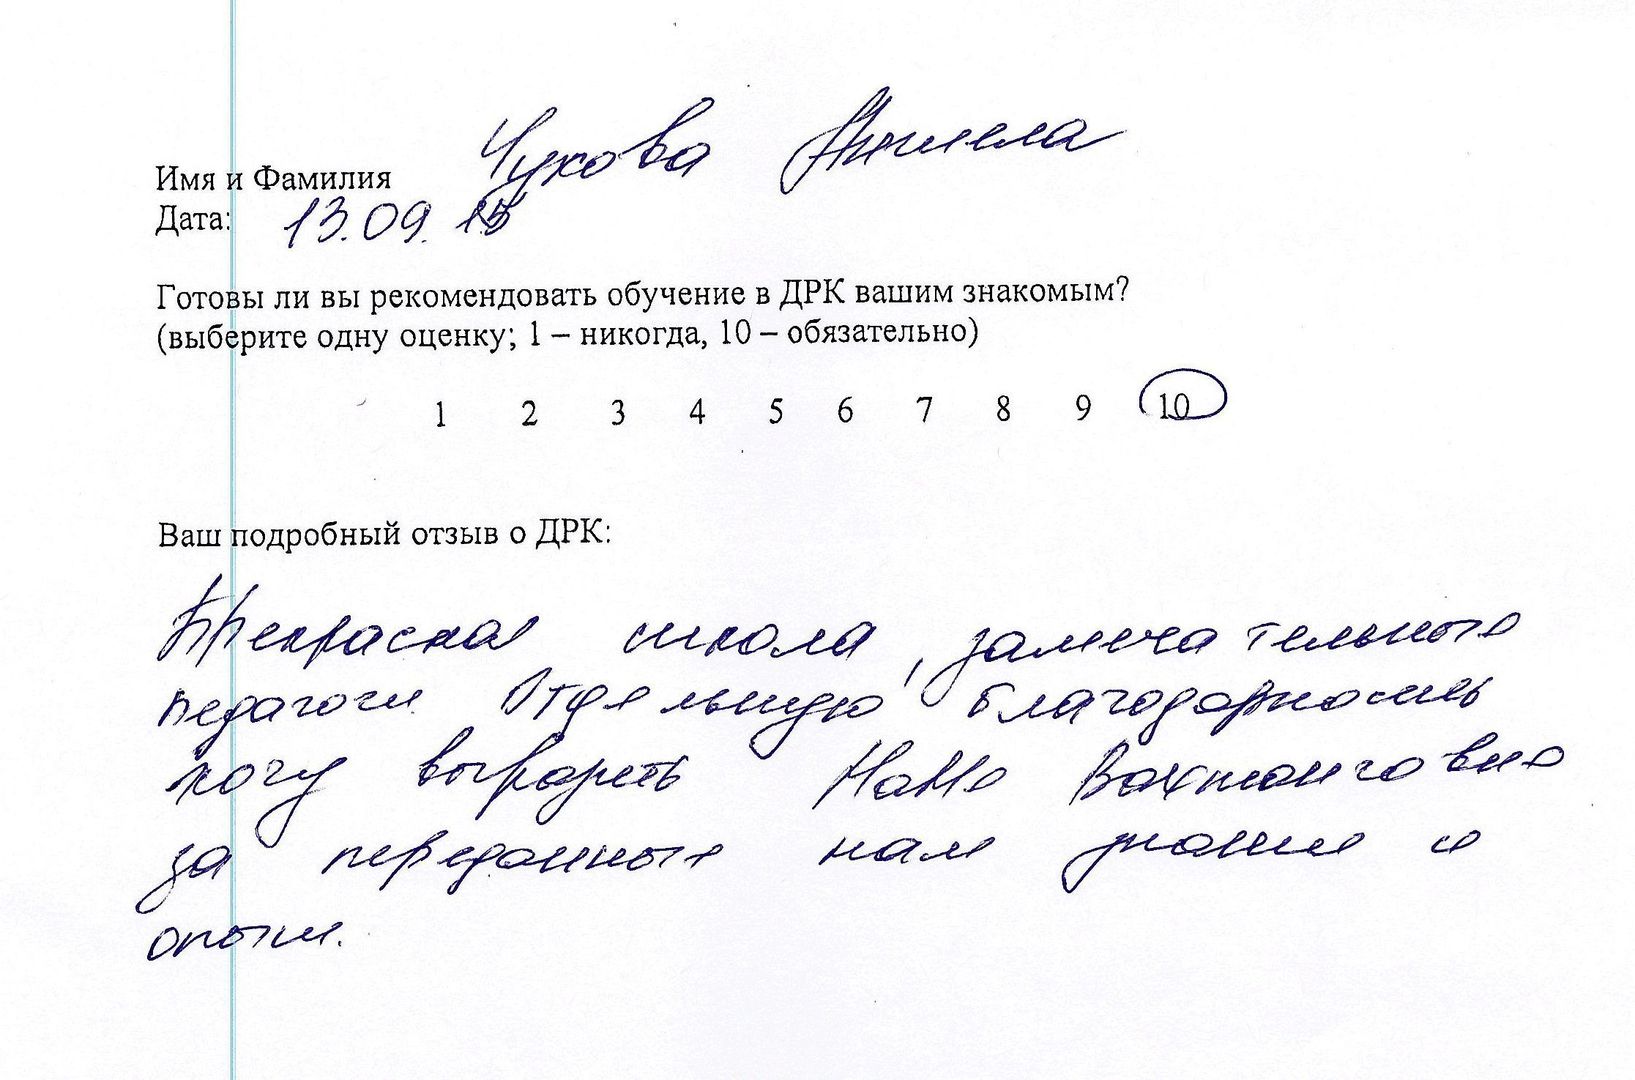 Имя и Фамилия Чукова Анжела
Дата: 13.09.15
Готовы ли вы рекомендовать обучение в ДРК вашим знакомым?
(выберите одну оценку; 1 – никогда, 10 – обязательно)
1 2 3 4 5 6 7 8 9 10
Ваш подробный отзыв о ДРК:
Прекрасная школа, замечательные
педагоги Отдельную благодарность
хочу выразить Нане Вахтанговне
за переданные нам знания и
опыт.